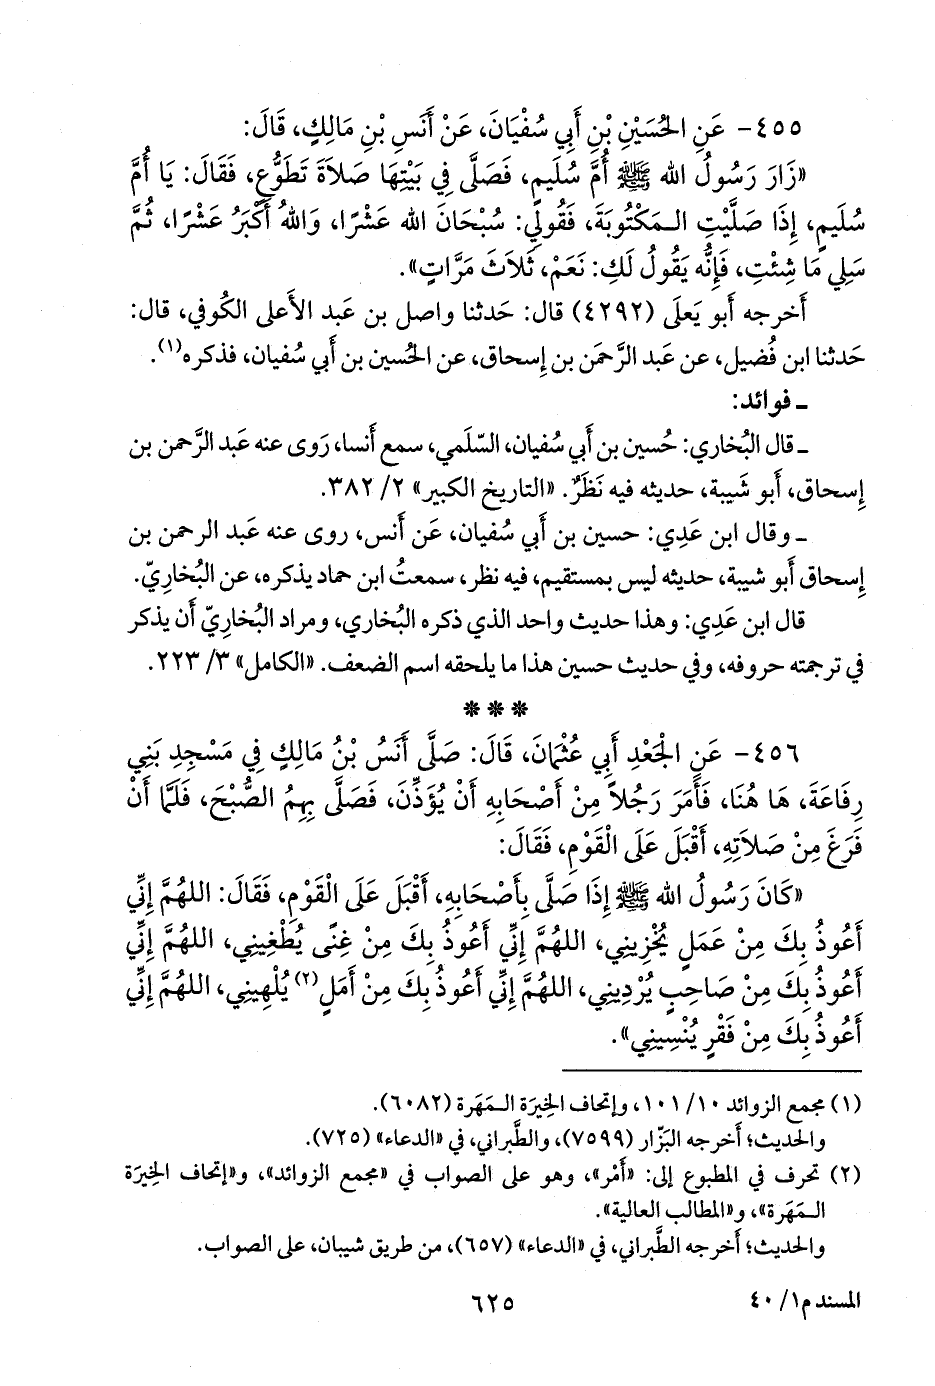 ٤٥٥- عَنِ الْحُسَيْنِ بْنِ أَبِي سُفْيَانَ، عَنْ أَنَسِ بْنِ مَالِكٍ، قَالَ:
«زَارَ رَسُولُ الله ﷺ أُمَّ سُلَيمٍ، فَصَلَّى فِي بَيْتِهَا صَلاَةَ تَطَوُّعٍ، فَقَالَ: يَا أُمَّ
سُلَيمٍ، إِذَا صَلَّيْتِ الـمَكْتُوبَةَ، فَقُولِي: سُبْحَانَ الله عَشْرًا، وَاللهُ أَكْبَرُ عَشْرًا، ثُمَّ
سَلِي مَا شِئْتِ، فَإِنَّه يَقُولُ لَكِ: نَعَمْ، ثَلاَثَ مَرَّاتٍ».
أَخرجه أَبو يَعلَى (٤٢٩٢) قال: حَدثنا واصل بن عَبد الأَعلى الكُوفي، قال:
حَدثنا ابن فُضيل، عن عَبد الرَّحمَن بن إِسحاق، عن الحُسين بن أَبي سُفيان، فذكره(١).
ـ فوائد:
ـ قال البُخاري: حُسين بن أَبي سُفيان، السّلَمي، سمع أَنسا، رَوى عنه عَبد الرَّحمن بن
إِسحاق، أَبو شَيبة، حديثه فيه نَظَرٌ. «التاريخ الكبير» ٢/ ٣٨٢.
ـ وقال ابن عَدِي: حسين بن أَبي سُفيان، عَن أَنس، روى عنه عَبد الرحمن بن
إِسحاق أَبو شيبة، حديثه ليس بمستقيم، فيه نظر، سمعتُ ابن حماد يذكره، عن البُخاريّ.
قال ابن عَدِي: وهذا حديث واحد الذي ذكره البُخاري، ومراد البُخاريّ أَن يذكر
في ترجمته حروفه، وفي حديث حسين هذا ما يلحقه اسم الضعف. «الكامل» ٣/ ٢٢٣.
* * *
٤٥٦- عَنِ الْجَعْدِ أَبِي عُثْمَانَ، قَالَ: صَلَّى أَنَسُ بْنُ مَالِكٍ فِي مَسْجِدِ بَنِي
رِفَاعَةَ، هَا هُنَا، فَأَمَرَ رَجُلاً مِنْ أَصْحَابِهِ أَنْ يُؤَذِّنَ، فَصَلَّى بِهِمُ الصُّبْحَ، فَلَمَّا أَنْ
فَرَغَ مِنْ صَلاَتِهِ، أَقْبَلَ عَلَى الْقَوْمِ، فَقَالَ:
«كَانَ رَسُولُ الله ﷺ إِذَا صَلَّى بِأَصْحَابِهِ، أَقْبَلَ عَلَى الْقَوْمِ، فَقَالَ: اللهُمَّ إِنِّي
أَعُوذُ بِكَ مِنْ عَمَلٍ يُخْزِينِي، اللهُمَّ إِنِّي أَعُوذُ بِكَ مِنْ غِنًى يُطْغِينِي، اللهُمَّ إِنِّي
أَعُوذُ بِكَ مِنْ صَاحِبٍ يُرْدِينِي، اللهُمَّ إِنِّي أَعُوذُ بِكَ مِنْ أَمَلٍ(٢) يُلْهِينِي، اللهُمَّ إِنِّي
أَعُوذُ بِكَ مِنْ فَقْرٍ يُنْسِينِي».
(١) مجمع الزوائد ١٠/ ١٠١، وإتحاف الخِيرَة الـمَهَرة (٦٠٨٢).
والحديث؛ أَخرجه البَزّار (٧٥٩٩)، والطَّبراني، في «الدعاء» (٧٢٥).
(٢) تحرف في المطبوع إلى: «أَمْر»، وهو على الصواب في «مجمع الزوائد»، و«إتحاف الخِيرَة
الـمَهَرة»، و«المطالب العالية».
والحديث؛ أَخرجه الطَّبراني، في «الدعاء» (٦٥٧)، من طريق شيبان، على الصواب.
المسند م١/ ٤٠
٦٢٥